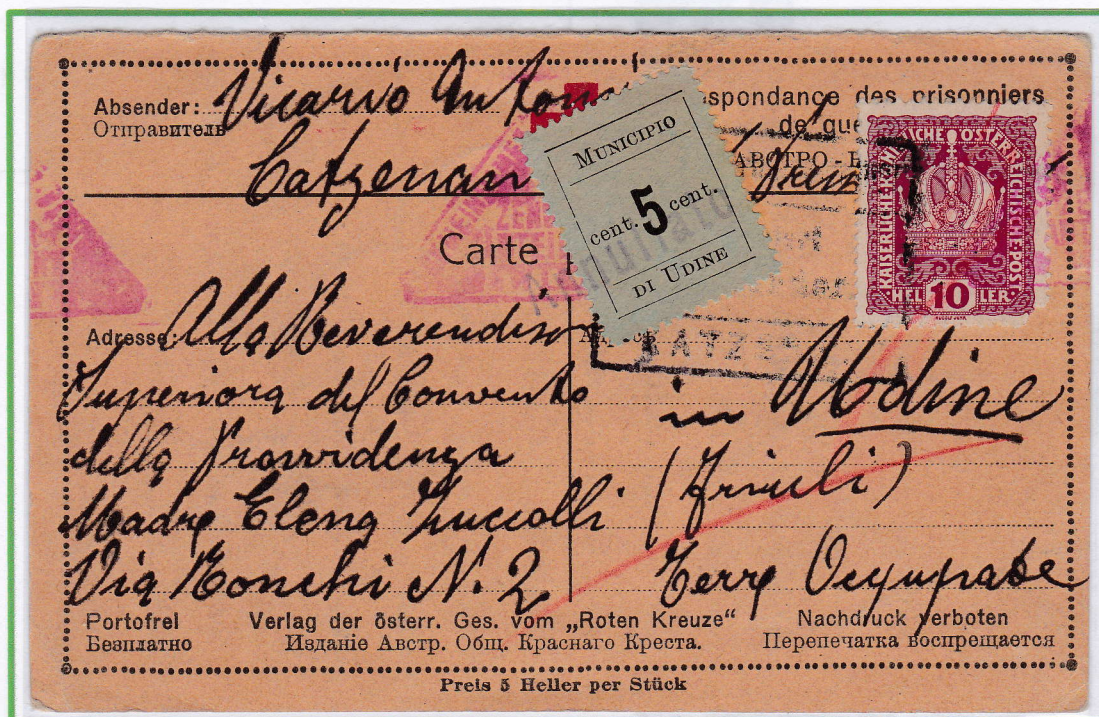 Absender: Vicario Antonio
Отправитель
spondance des prisonniers
de gue
АВСТРО - В
Catzenau
Carte
MUNICIPIO
cent. 5 cent.
DI UDINE
Annullato
KAISERLICHE KÖNIGLICHE ÖSTERREICHISCHE POST
HELLER 10
KATZE
Adresse: Alla Reverendis
Superiora del Convento
della Provvidenza
Madre Elena Zuccolli
Via Ronchi N. 2
in Udine
(Friuli)
Terre Occupate
Portofrei
Безплатно
Verlag der österr. Ges. vom „Roten Kreuze“
Изданіе Австр. Общ. Краснаго Креста.
Nachdruck verboten
Перепечатка воспрещается
Preis 5 Heller per Stück